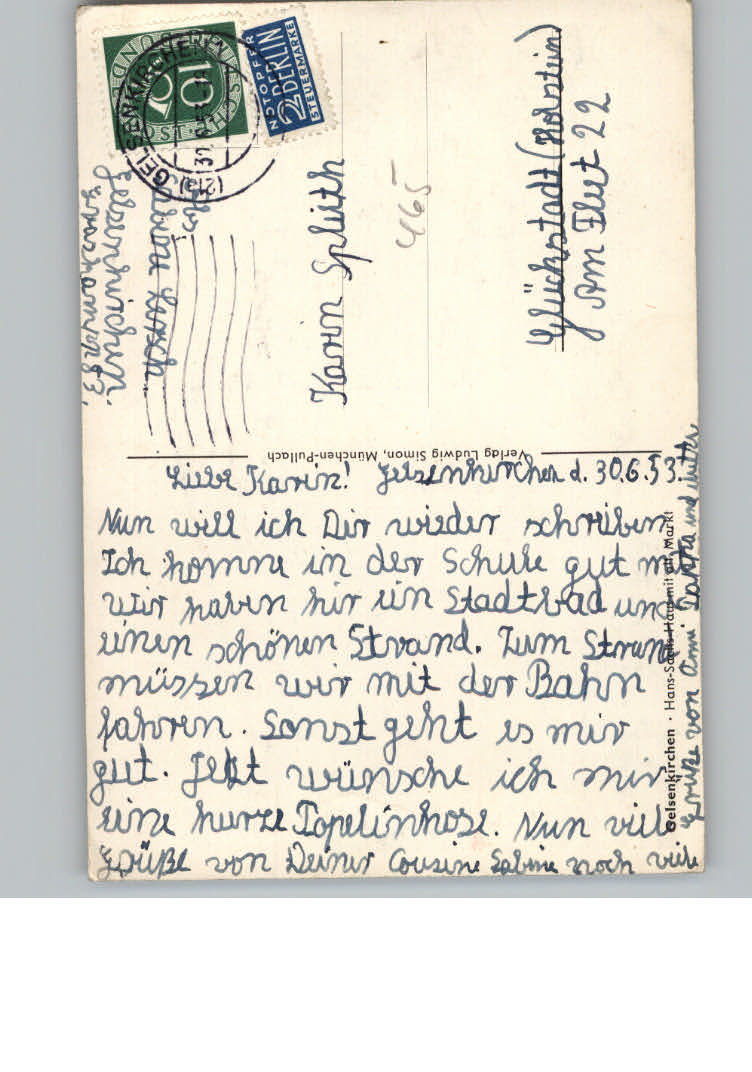 Liebe Karin! Gelsenkirchen d. 30.6.53.
Nun will ich Dir wieder schreiben.
Ich komme in der Schule gut mit
Wir haben hir ein Stadtbad und
einen schönen Strand. Zum Strand
müssen wir mit der Bahn
fahren. Sonst geht es mir
gut. Jetzt wünsche ich mir
eine kurze Popelinhose. Nun viele
Grüße von Deiner Cousine Sabine noch viele
Grüße von Ami Pappa und Mutti
Gelsenkirchen · Hans-Sachs-Haus mit alt. Markt
Verlag Ludwig Simon, München-Pullach
Karin Splieth
465
Glückstadt (Holstein)
Am Fleet 22
Abs.
Sabine
Gelsenkirchen
10
DEUTSCHE
BUNDESPOST
NOTOPFER
2 BERLIN
STEUERMARKE
(21a) GELSENKIRCHEN